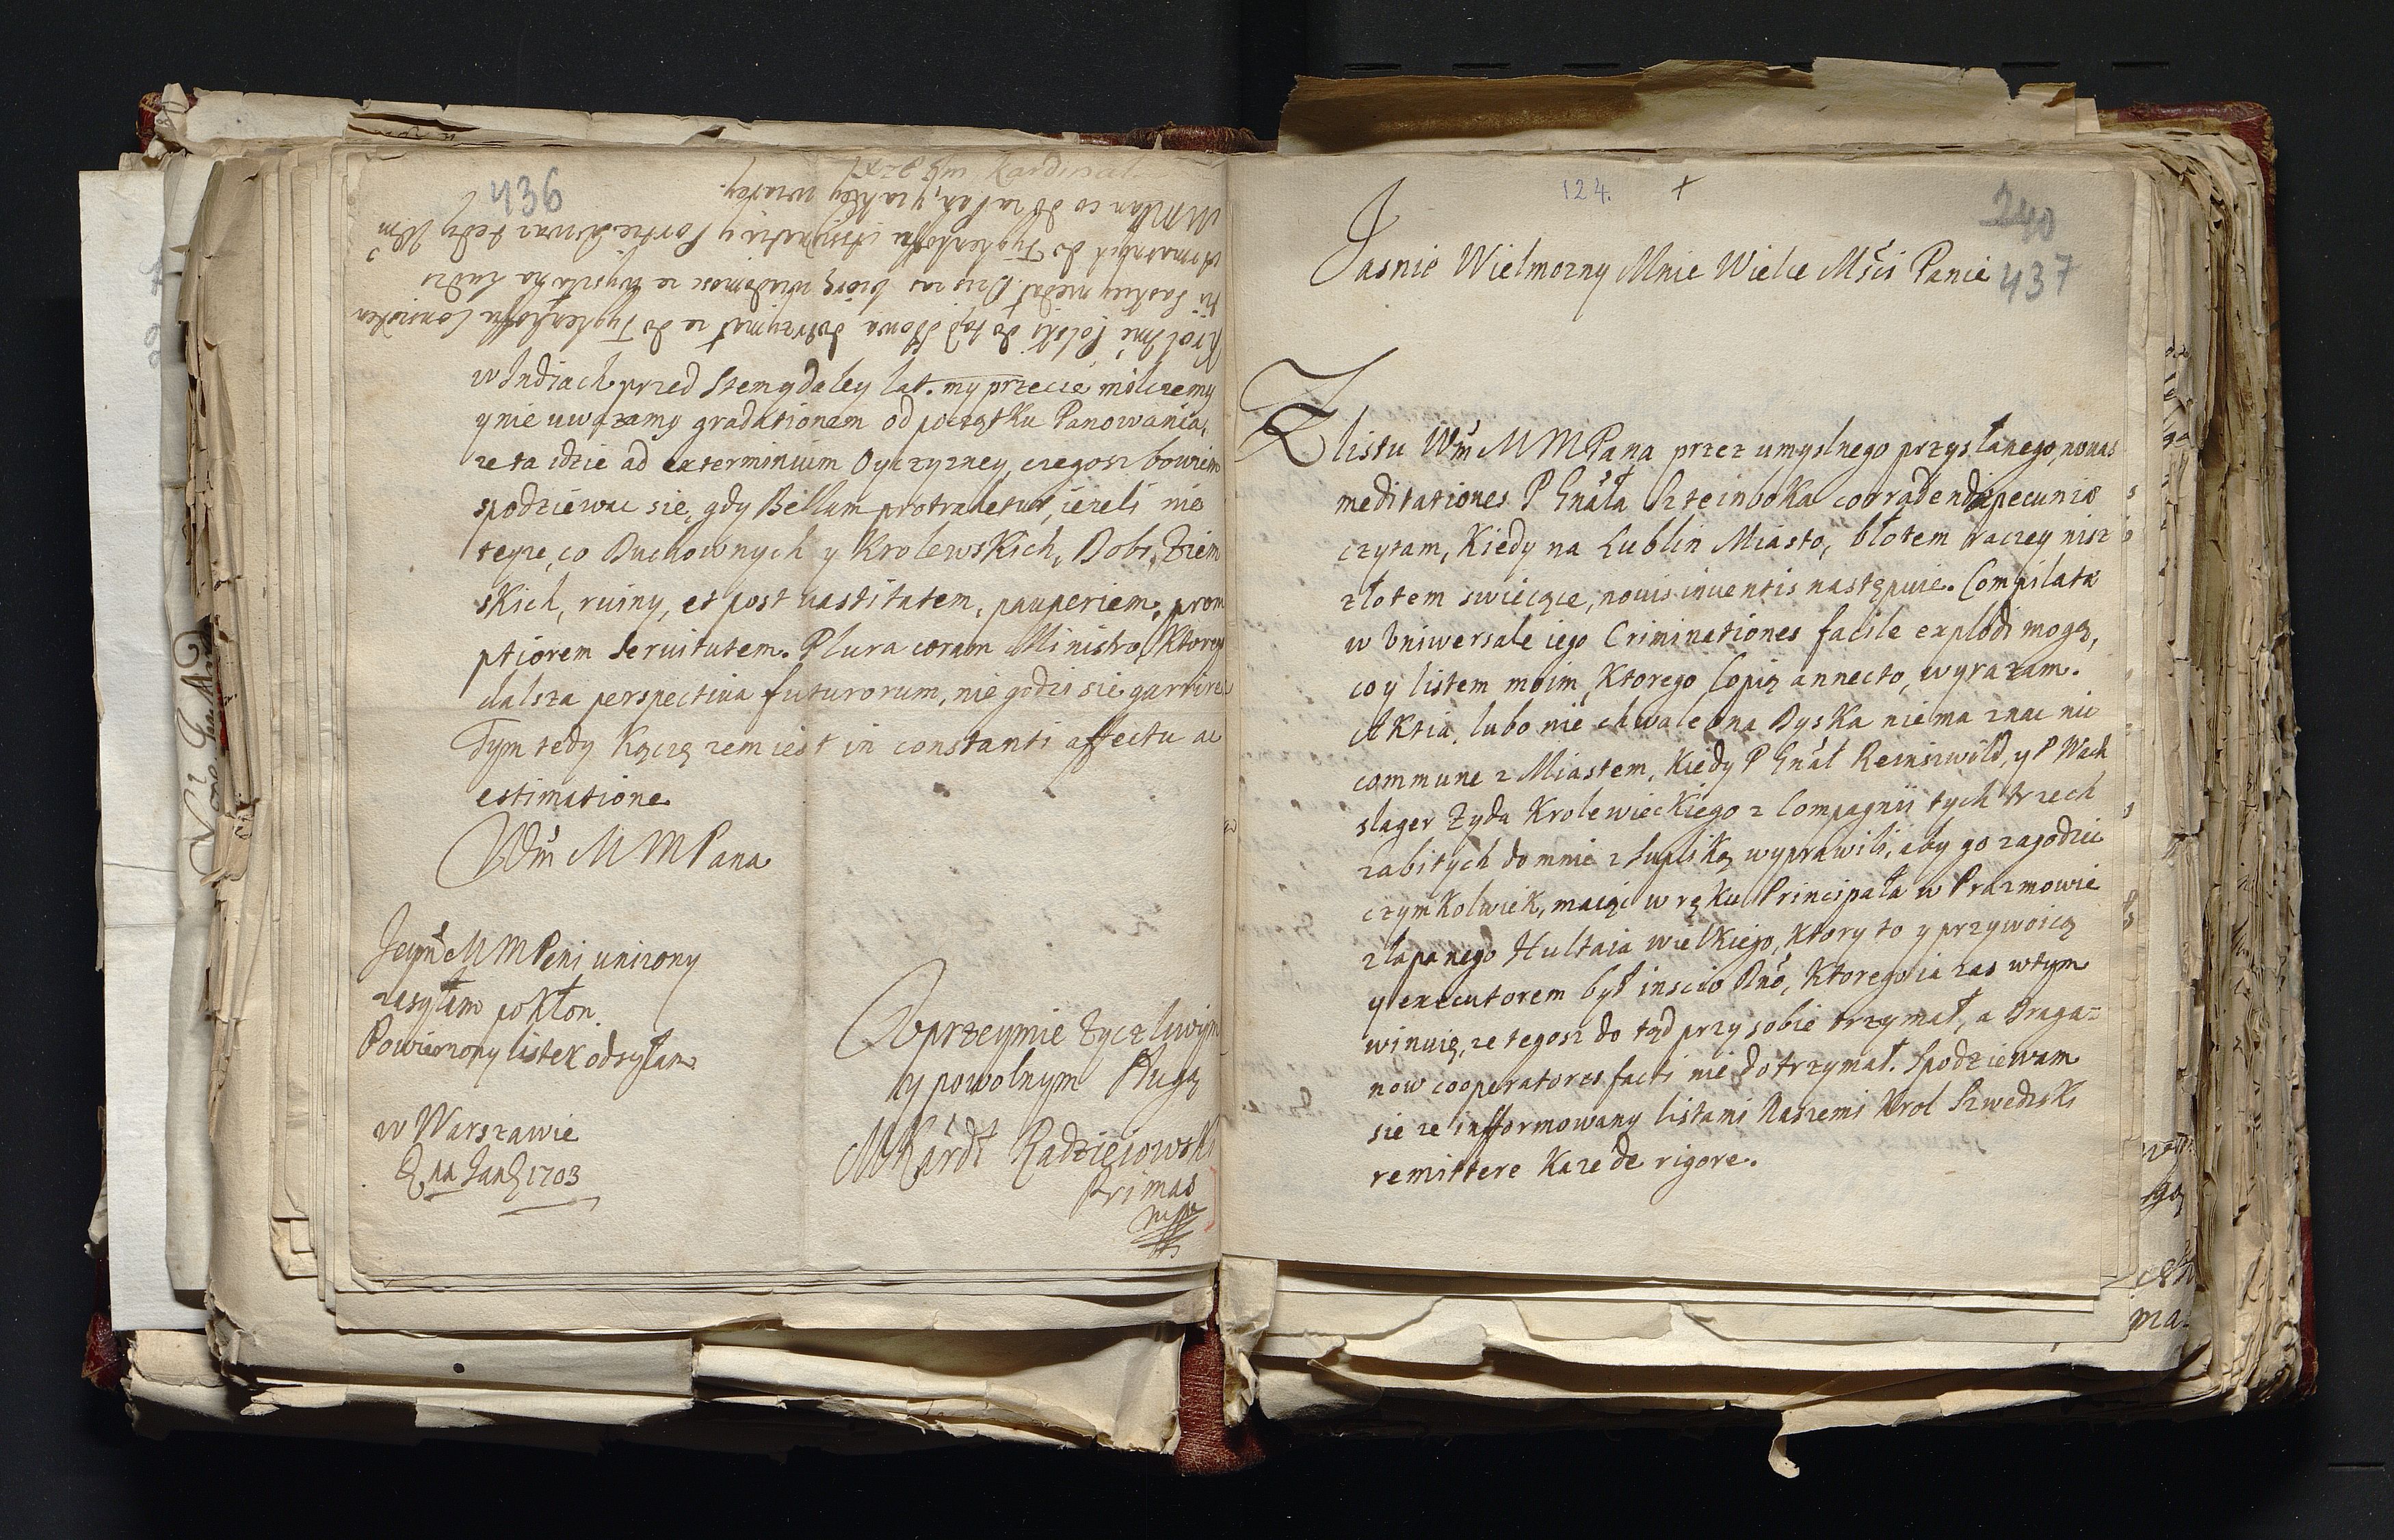 436
w Indiach przed stem y daley lat. my przecie milczemy
y nie uwazamy gradationem od początku Panowania,
ze ta idzie ad exterminium Oyczyzney, czegosz bowiem
spodziewac sie, gdy Bellum protrahetur, iezeli nie
teyze, co Duchownych y Krolewskich, Dobr, Ziem
skich, ruiny, et post vastitatem, pauperiem, prom
ptiorem servitutem. Plura coram Ministro, Ktorey
dalsza perspectiva futurorum, nie godzi sie garrire
Tym tedy Kączę zem iest in constanti affectu ac
estimatione
Wm M M Pana
Jeym M M Peni unizony
zasyłam pokłon
Powierzony listek odsyłam
w Warszawie
Jan 1703
Uprzeymie zyczliwym
y powolnym sługą
M Kardł Radzieiowski
Primas
mp
124. +
240
Jasnie Wielmozny Mnie Wielce Mści Panie 437
Z listu Wm M M Pana przez umyslnego przysłanego, novas
meditationes P Gnała Szteinboka corradendæ pecuniæ
czytam, Kiedy na Lublin Miasto, błotem raczey nisz
złotem swiecące, novis inventis następuie. Compilatæ
w Uniwersale iego Criminationes facile explodi mogą,
co y listem moim, Ktorego Copią annecto, wyrazam.
Aktia, lubo nie chwalebna Dyska nie ma znac nic
commune z Miastem, Kiedy P Gnał Reinszwild, y P Wach
slager Zyda Krolewieckiego z Compagnii tych trzech
zabitych do mnie z supliką wyprawili, aby go zagodzic
czymkolwiek, maiąc w ręku Principała w Prazmowie
złapanego Hultaia wielkiego, ktory to y przywoicą
y executorem był inscio Dno, Ktorego ia zas w tym
winuię, ze tegosz do tąd przy sobie trzymał, a Draga=
now cooperatores facti nie dotrzymał. Spodziewam
sie ze informowany listami Naszemi Krol Szwedzki
remittere Kaze de rigore.